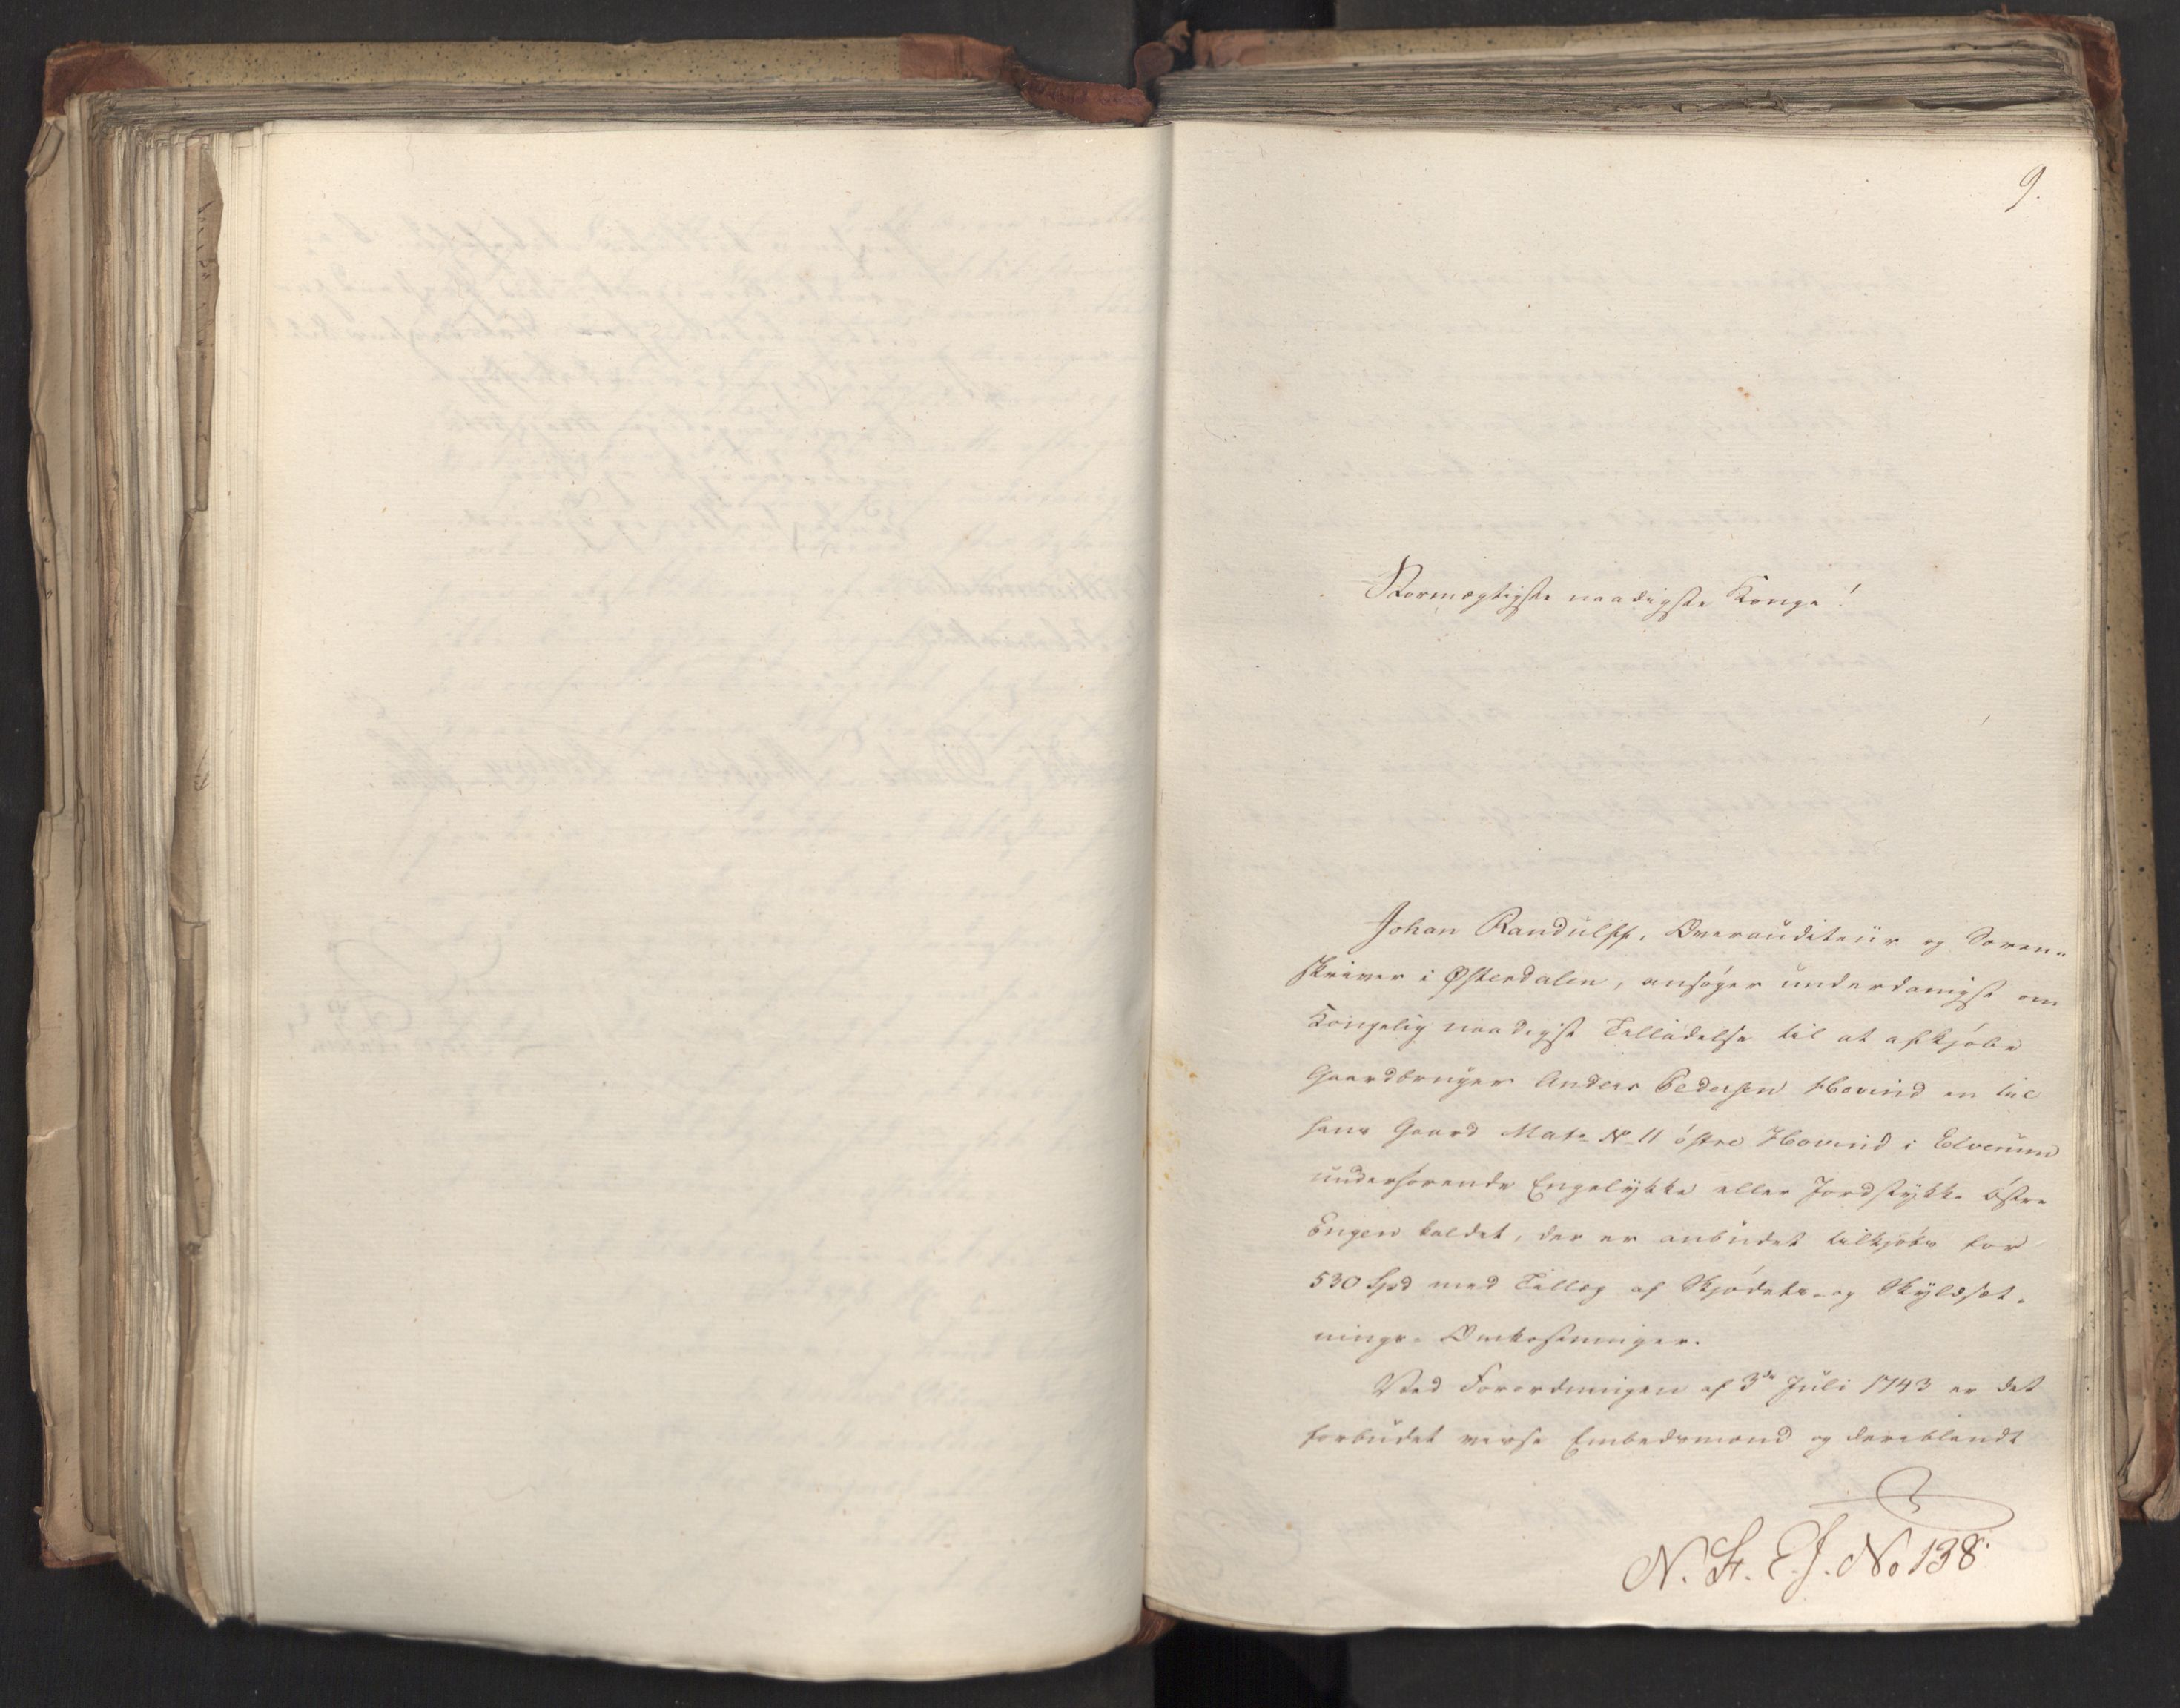 9.
Stormægtigste naadigste Konge!
Johan Randulff, Overauditeur og Soren-
skriver i Østerdalen, ansøger underdanigst om
Kongelig naadigst Tilladelse til at afkjøbe
Gaardbruger Anders Pedersen Hovind en til
hans Gaard Mat. No 11 østre Hovind i Elverum
underhørende Engeløkke eller Jordstykke Østre
Engen kaldet, der er anbudet tilkjøbs for
530 Spd med Tillæg af Skjødets- og Skyldsæt-
nings- Omkostninger.
Ved Forordningen af 3de Juli 1743 er det
forbudet visse Embedsmænd og deriblandt
N. St. E. J. No 138.